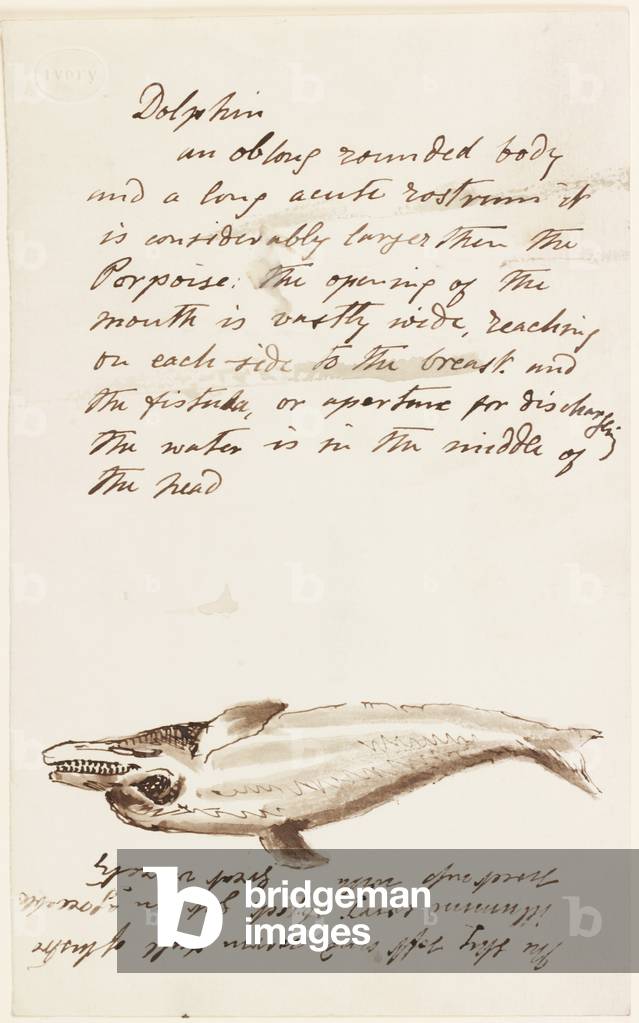 IVORY
Dolphin
an oblong rounded body
and a long acute rostrum it
is considerably larger then the
Porpoise: the opening of the
mouth is vastly wide, reaching
on each side to the breast. and
the fistula, or aperture for discharging
the water is in the middle of
the head
The sky soft and warm full of lustre
great
bridgeman
images